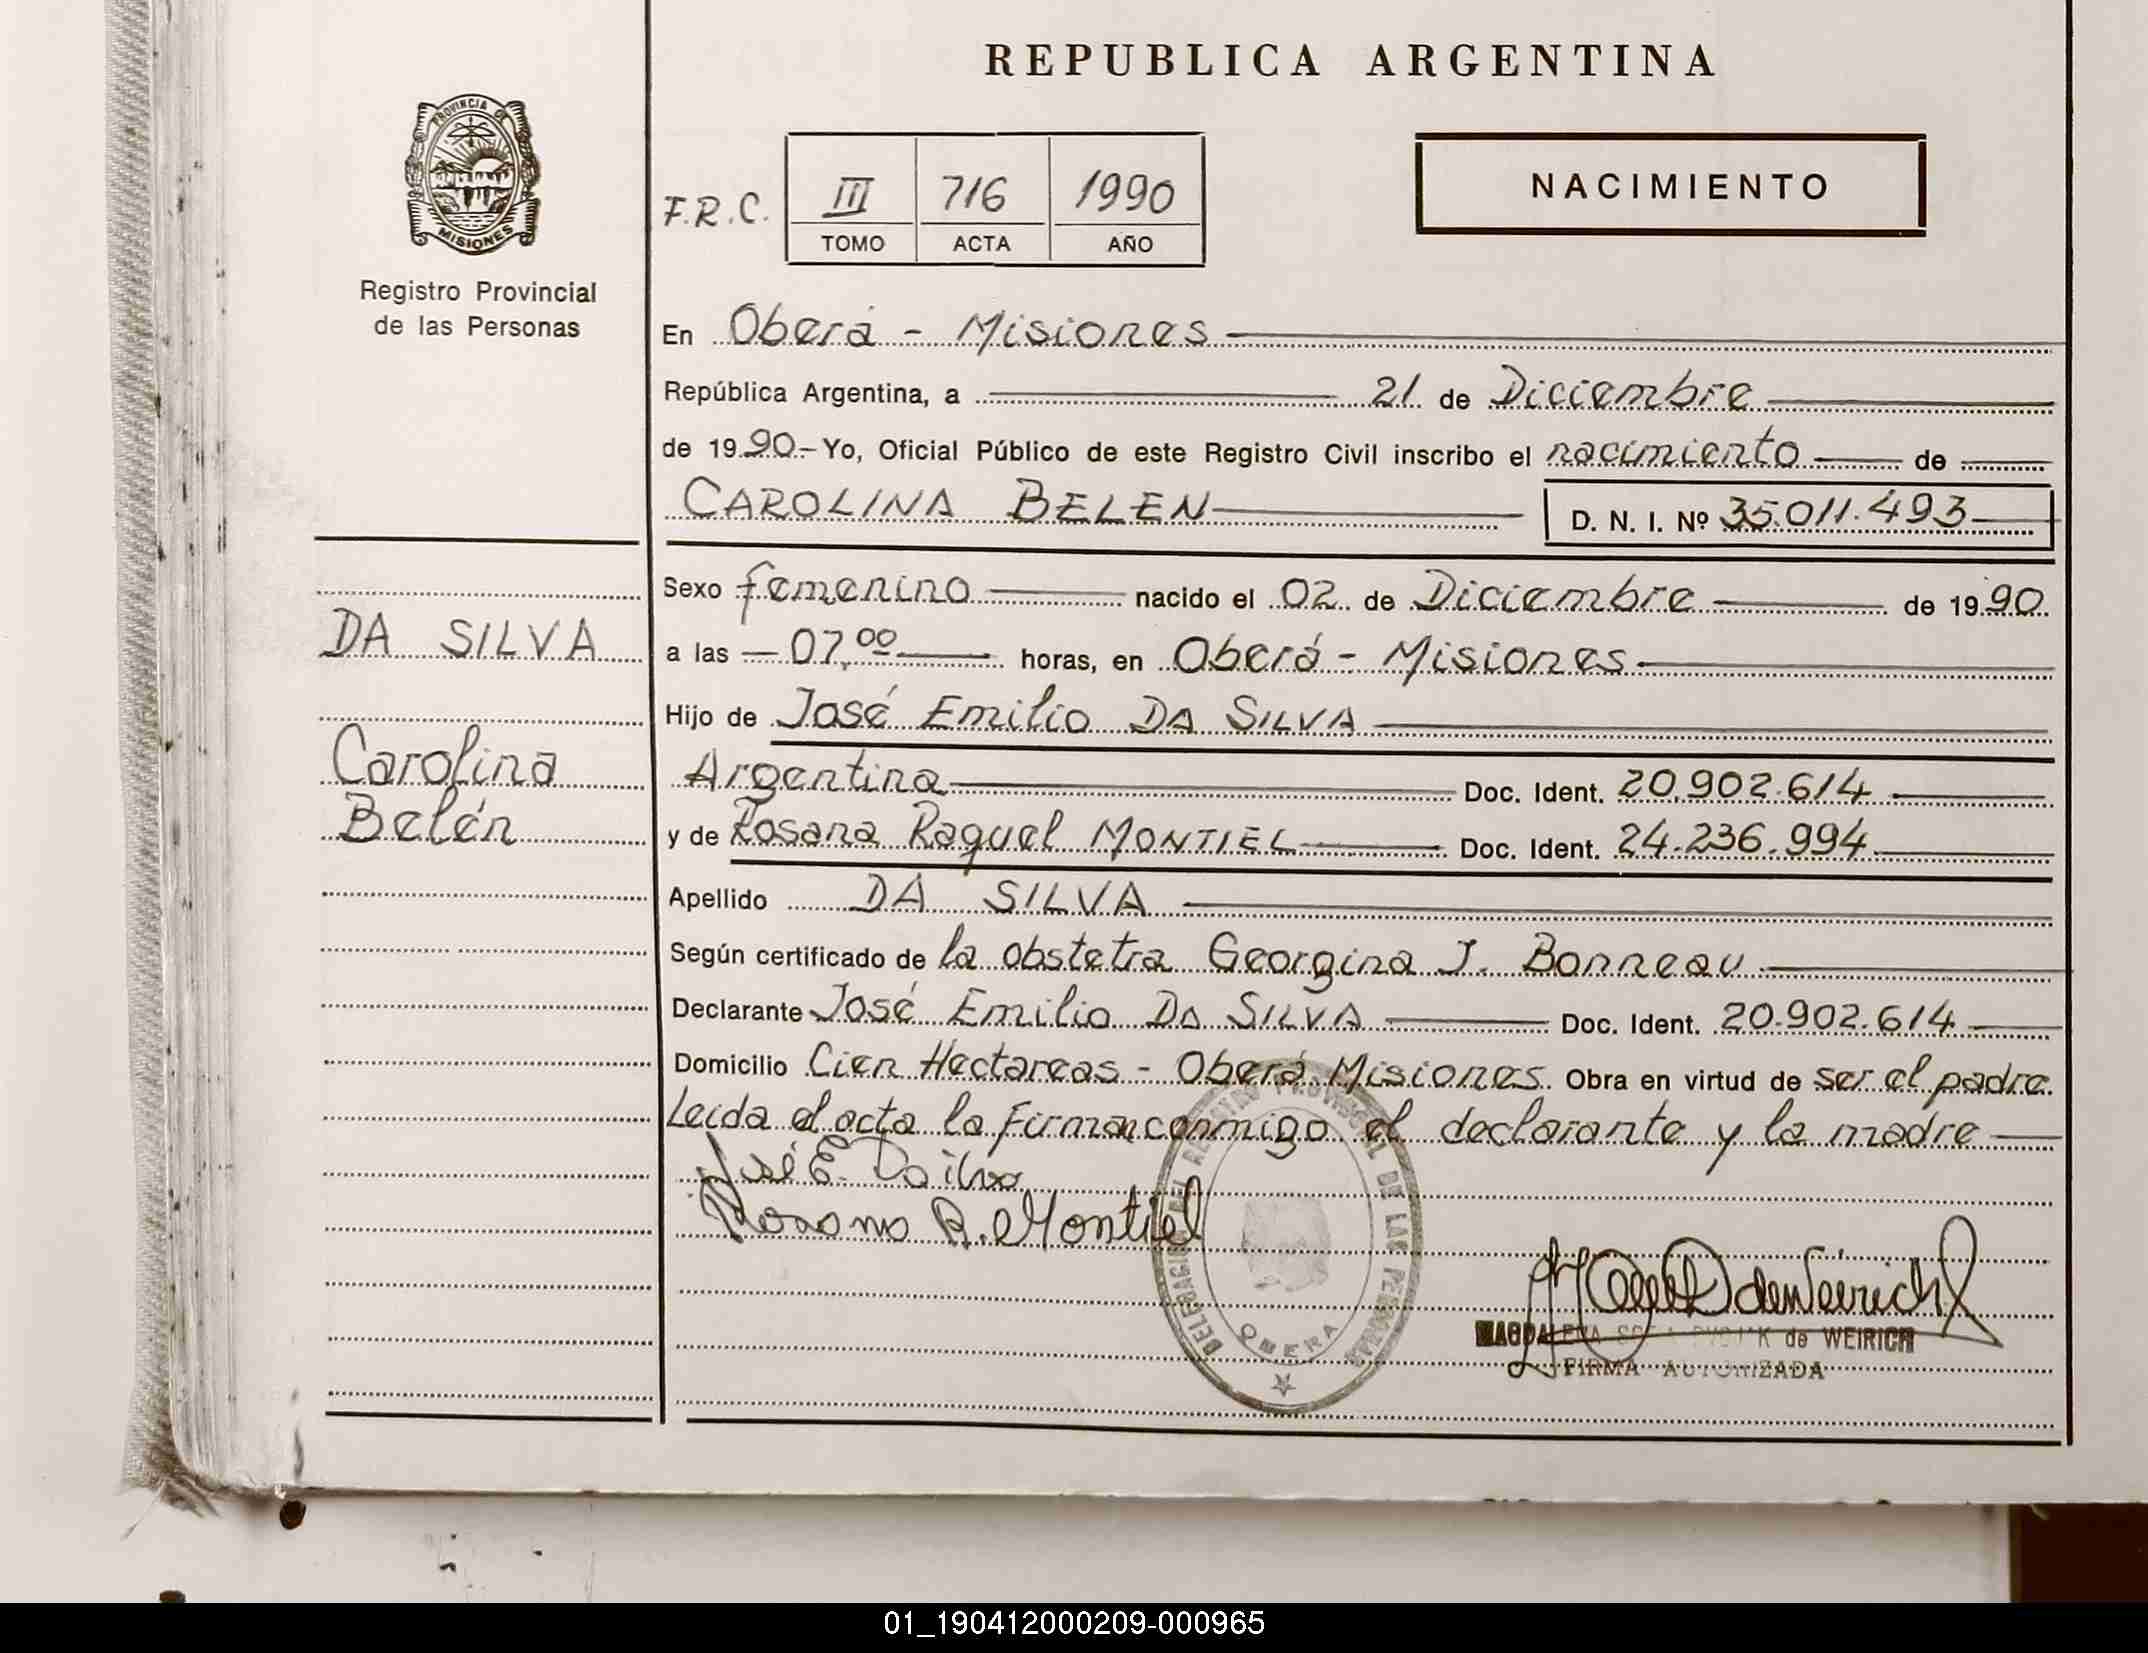 REPUBLICA ARGENTINA
PROVINCIA DE
MISIONES
Registro Provincial
de las Personas
F.R.C. III 716 1990
TOMO ACTA AÑO
NACIMIENTO
En Oberá - Misiones
República Argentina, a 21 de Diciembre
de 19 90.- Yo, Oficial Público de este Registro Civil inscribo el nacimiento de
CAROLINA BELEN D. N. I. Nº 35.011.493
DA SILVA
Carolina
Belén
Sexo femenino nacido el 02 de Diciembre de 19 90
a las 07,00 horas, en Oberá - Misiones
Hijo de José Emilio DA SILVA
Argentina Doc. Ident. 20.902.614
y de Rosana Raquel MONTIEL Doc. Ident. 24.236.994
Apellido DA SILVA
Según certificado de la obstetra Georgina J. Bonneau
Declarante José Emilio DA SILVA Doc. Ident. 20.902.614
Domicilio Cien Hectareas - Oberá Misiones Obra en virtud de ser el padre.
Leida el acta la firman conmigo el declarante y la madre
José E. Da silva
Rosana R. Montiel
DELEGACION DEL REGISTRO PROVINCIAL DE LAS PERSONAS
OBERA
de Weirich
MAGDALENA de WEIRICH
FIRMA AUTORIZADA
01_190412000209-000965